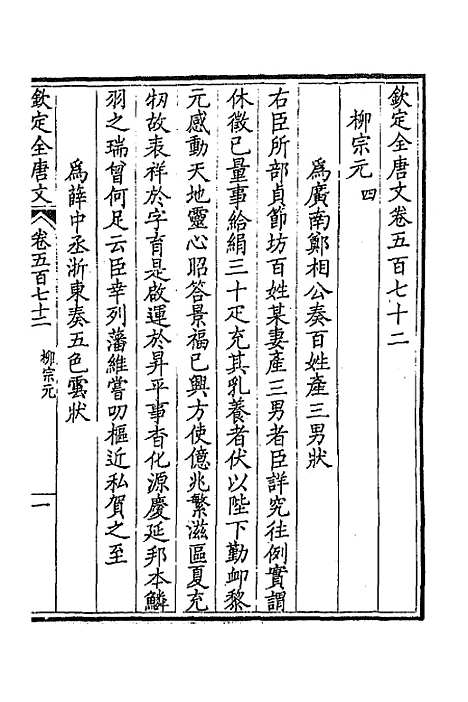 欽定全唐文卷五百七十二
柳宗元 四
爲廣南鄭相公奏百姓產三男狀
右臣所部貞節坊百姓某妻產三男者臣詳究往例實謂
休徵已量事給絹三十疋充其乳養者伏以陛下勤卹黎
元感動天地靈心昭答景福已興方使億兆繁滋區夏充
牣故表祥於字育是啟運於昇平事杳化源慶延邦本鱗
羽之瑞曾何足云臣幸列藩維嘗叨樞近私賀之至
爲薛中丞浙東奏五色雲狀
欽定全唐文 卷五百七十二 柳宗元 一